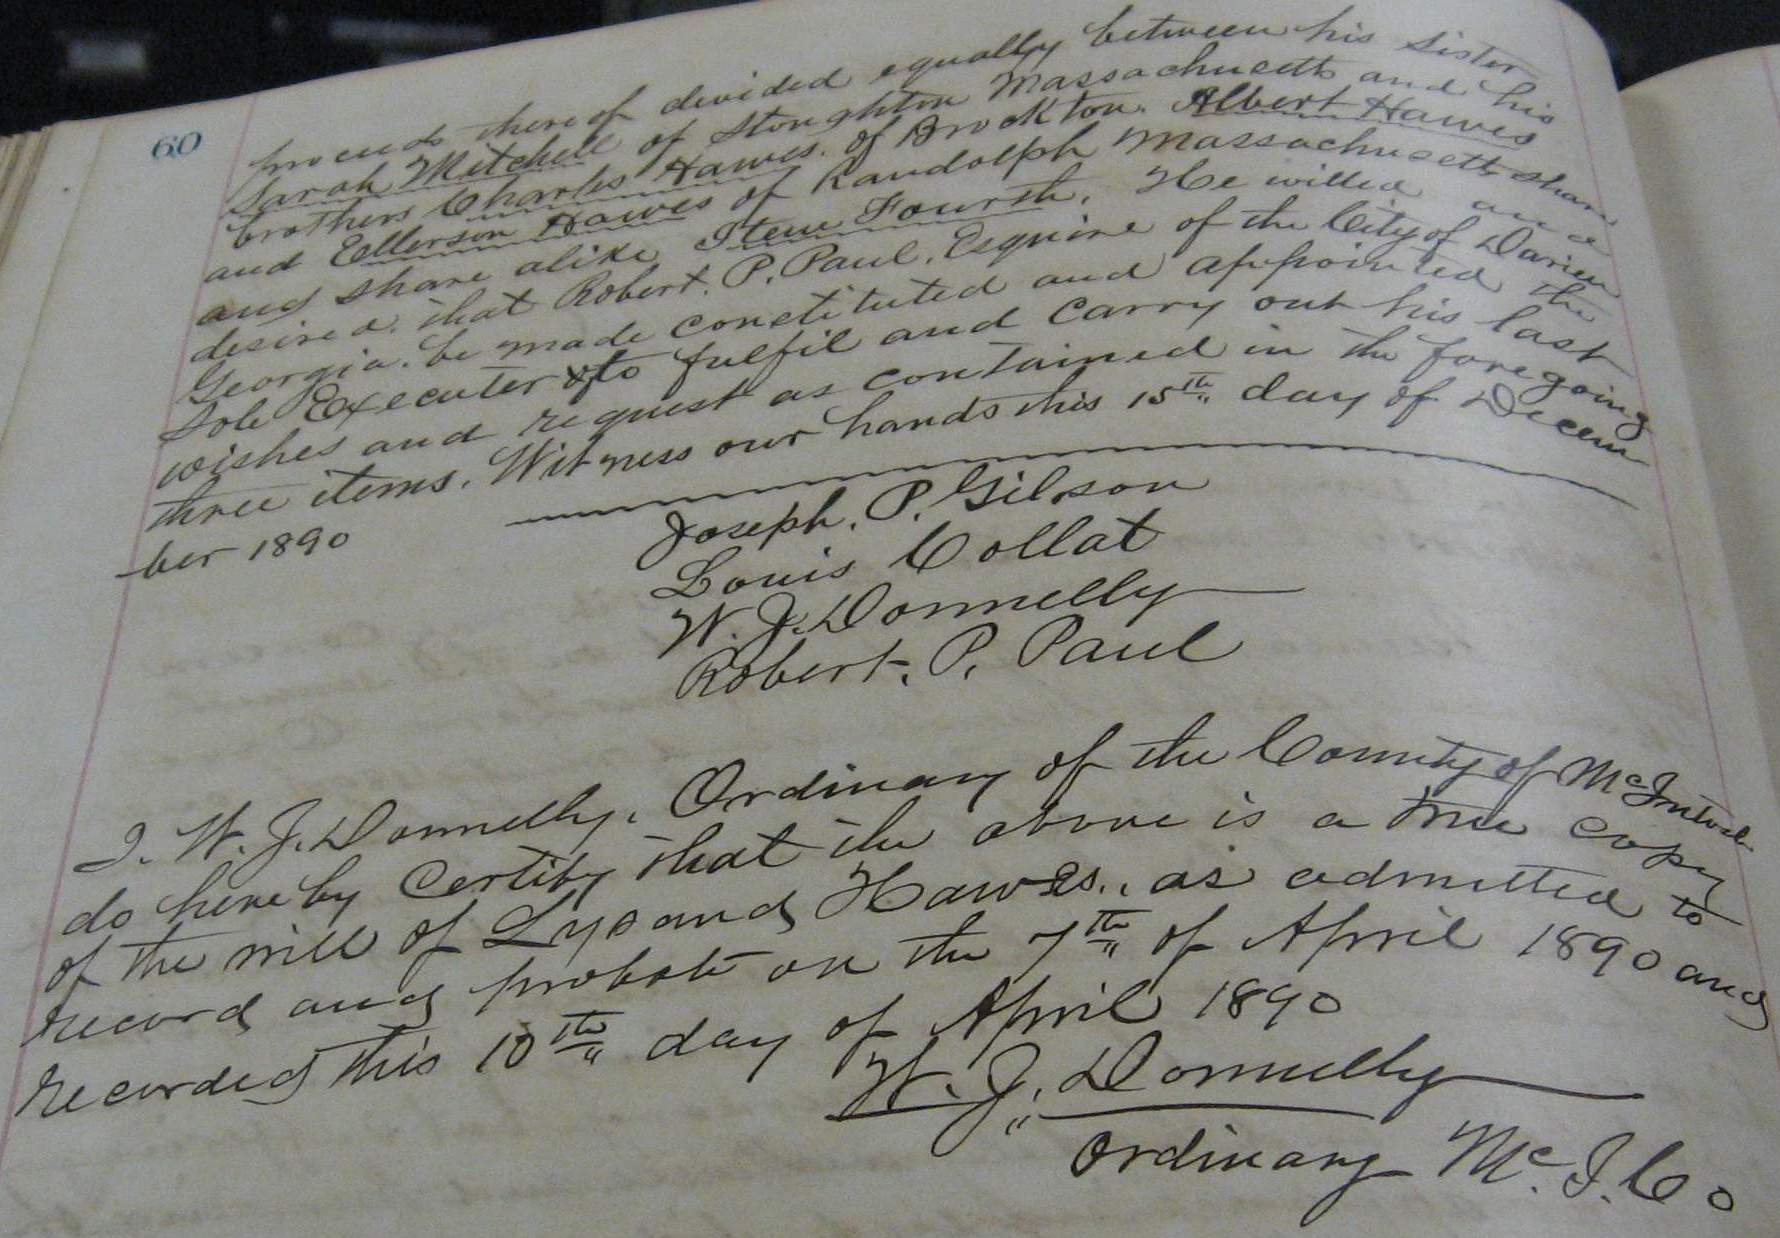 60
proceeds there of devided equally between his sister
Sarah Mitchell of Stoughton Massachusetts and his
brothers Charles Hawes. of Brockton. Albert Hawes
and Ellerson Hawes of Randolph Massachusetts share
and share alike Item Fourth. He willed and
desired. that Robert. P. Paul. Esquire of the City of Darien
Georgia. be made constituted and appointed the
Sole Executer to fulfil and carry out his last
wishes and request as contained in the foregoing
three items. Witness our hands this 15th day of Decem
ber 1890
Joseph. P. Gilson
Louis Collat
W. J. Donnelly
Robert. P. Paul
I. W. J. Donnelly. Ordinary of the County of McIntosh
do hereby Certify that the above is a true copy
of the will of Lysand Hawes., as admitted to
record and probate on the 7th of April 1890 and
recorded this 10th day of April 1890
W. J. Donnelly
Ordinary Mc. I. Co